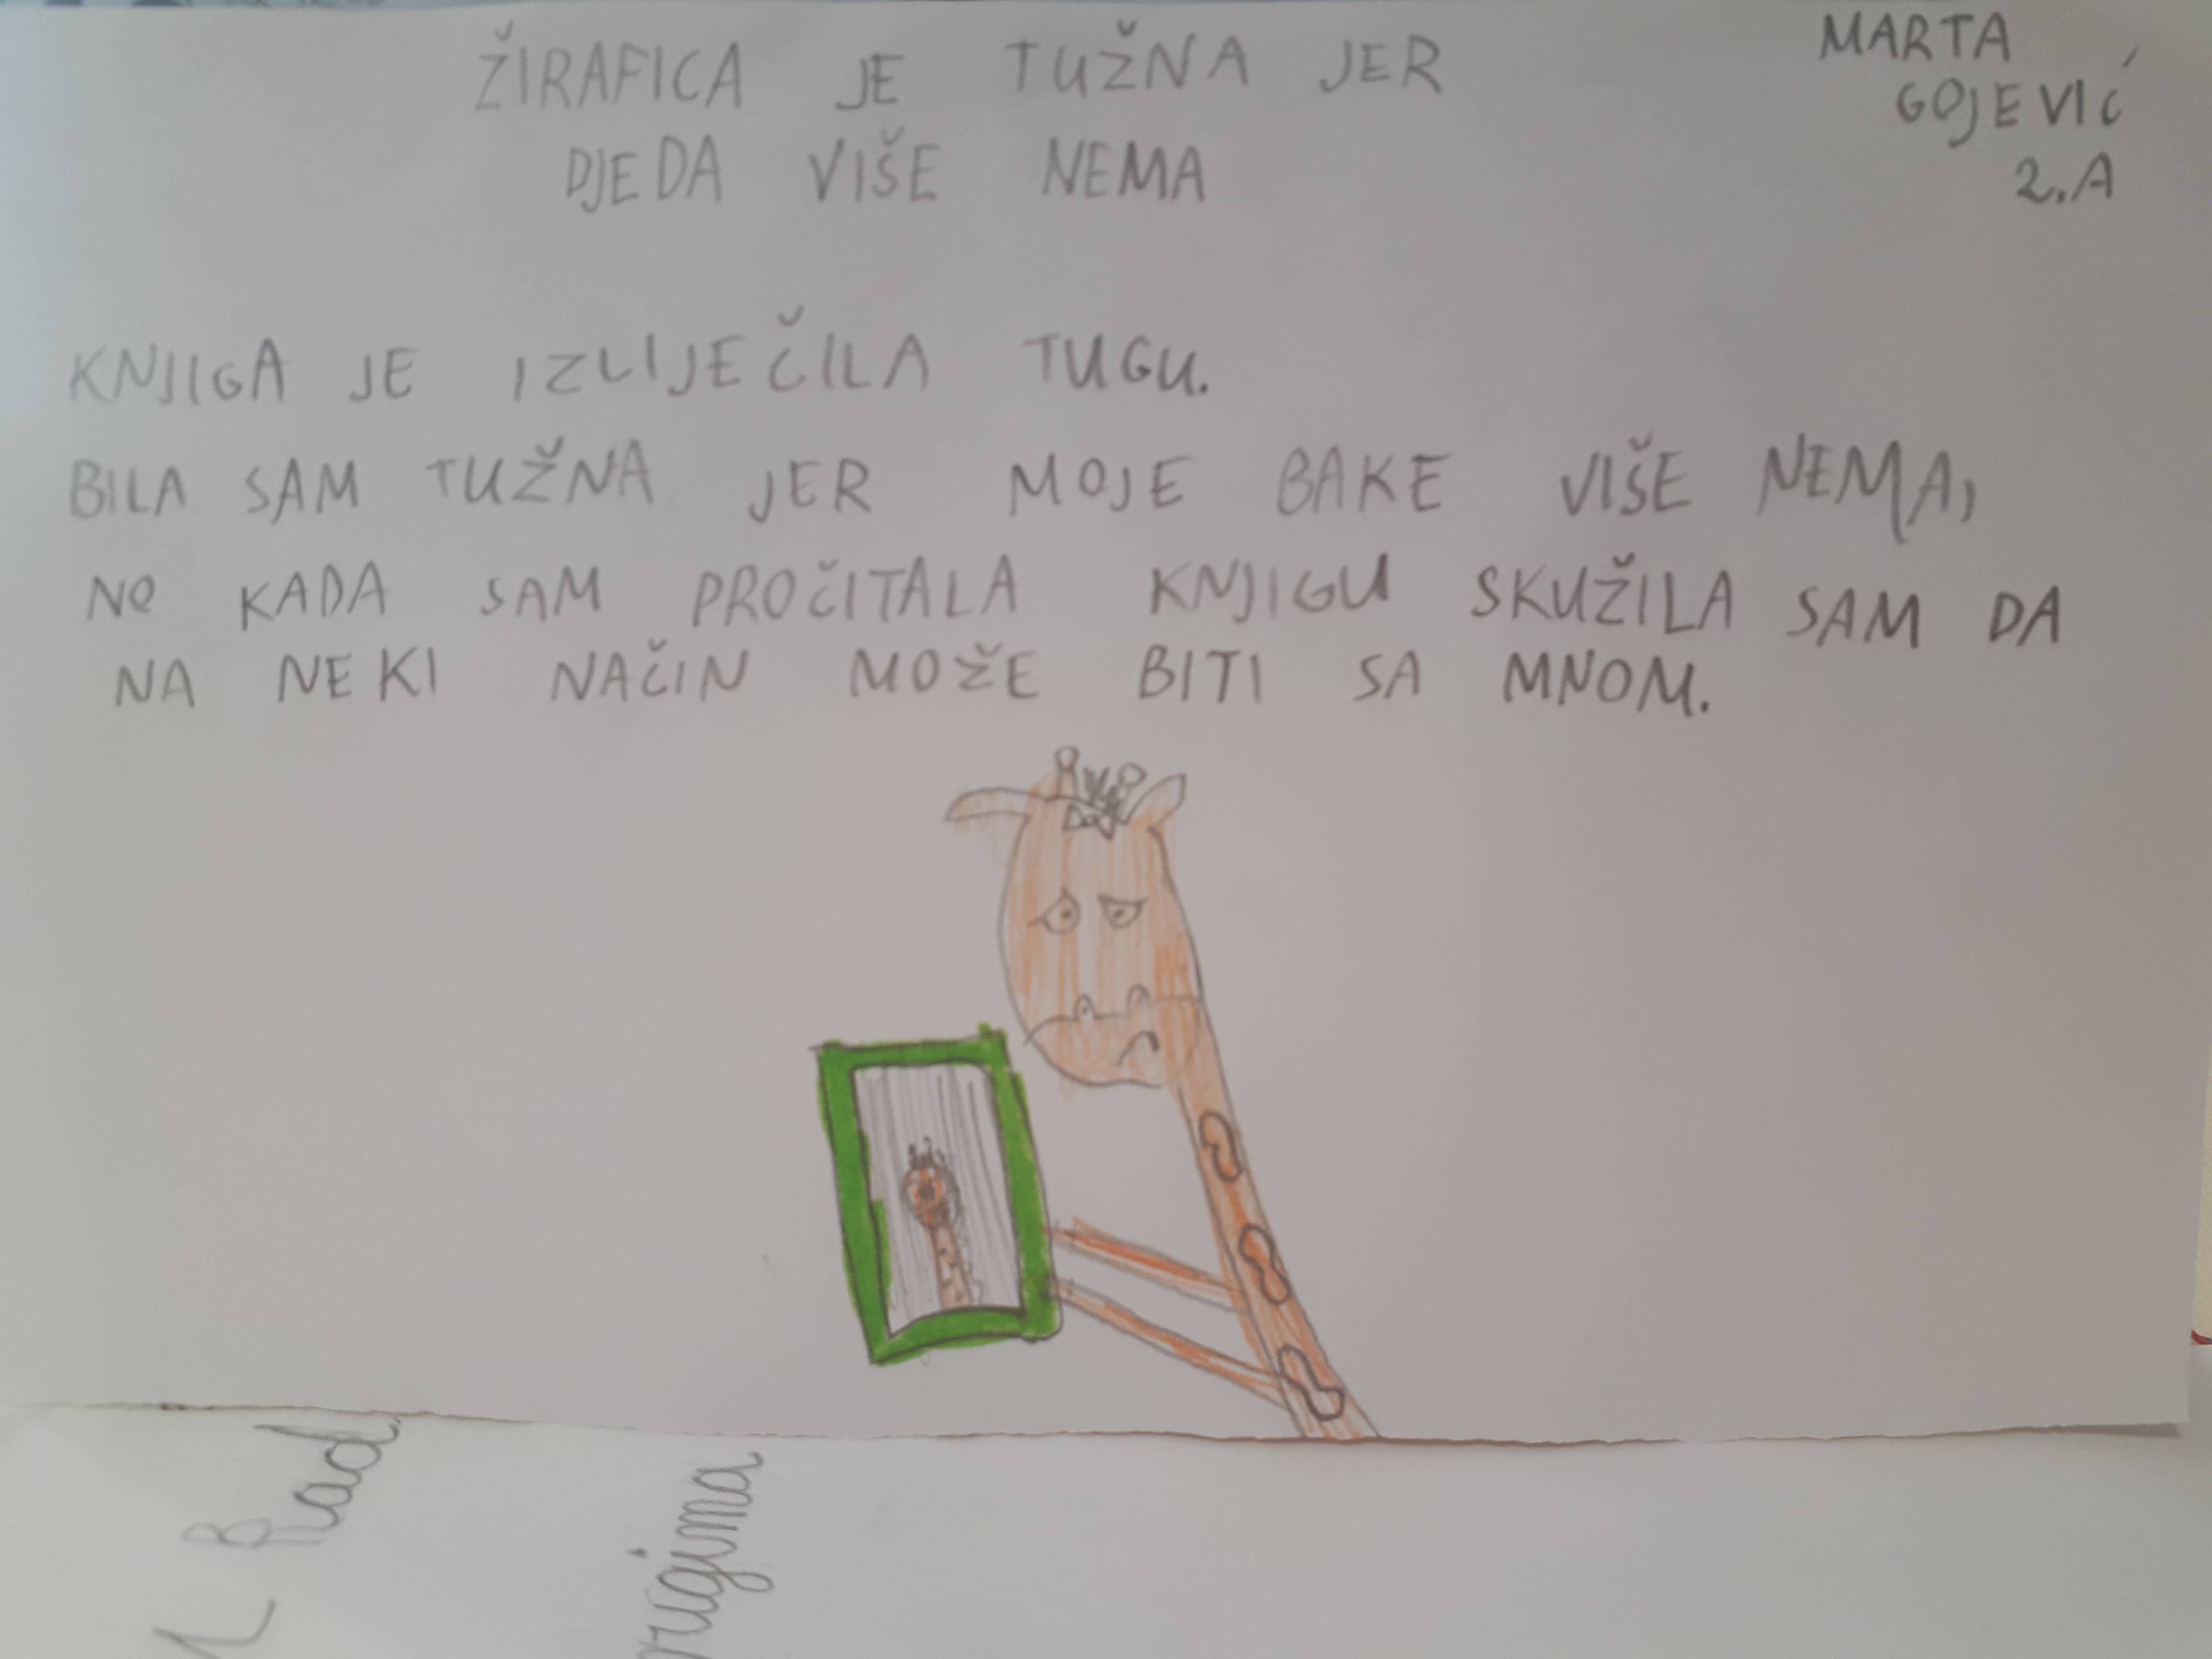 ŽIRAFICA JE TUŽNA JER
DJEDA VIŠE NEMA
MARTA
GOJEVIĆ
2.A
KNJIGA JE IZLIJEČILA TUGU.
BILA SAM TUŽNA JER MOJE BAKE VIŠE NEMA,
NO KADA SAM PROČITALA KNJIGU SKUŽILA SAM DA
NA NEKI NAČIN MOŽE BITI SA MNOM.